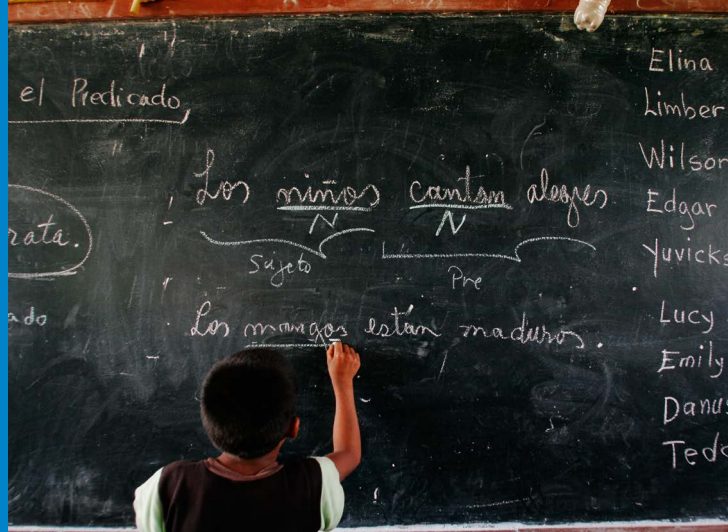 el Predicado
rata.
ado
Los niños cantan alegres
N N
Sujeto
Pre
Los mangos están maduros.
Elina
Limber
Wilson
Edgar
Yuvicks
Lucy
Emily
Danus
Tedd